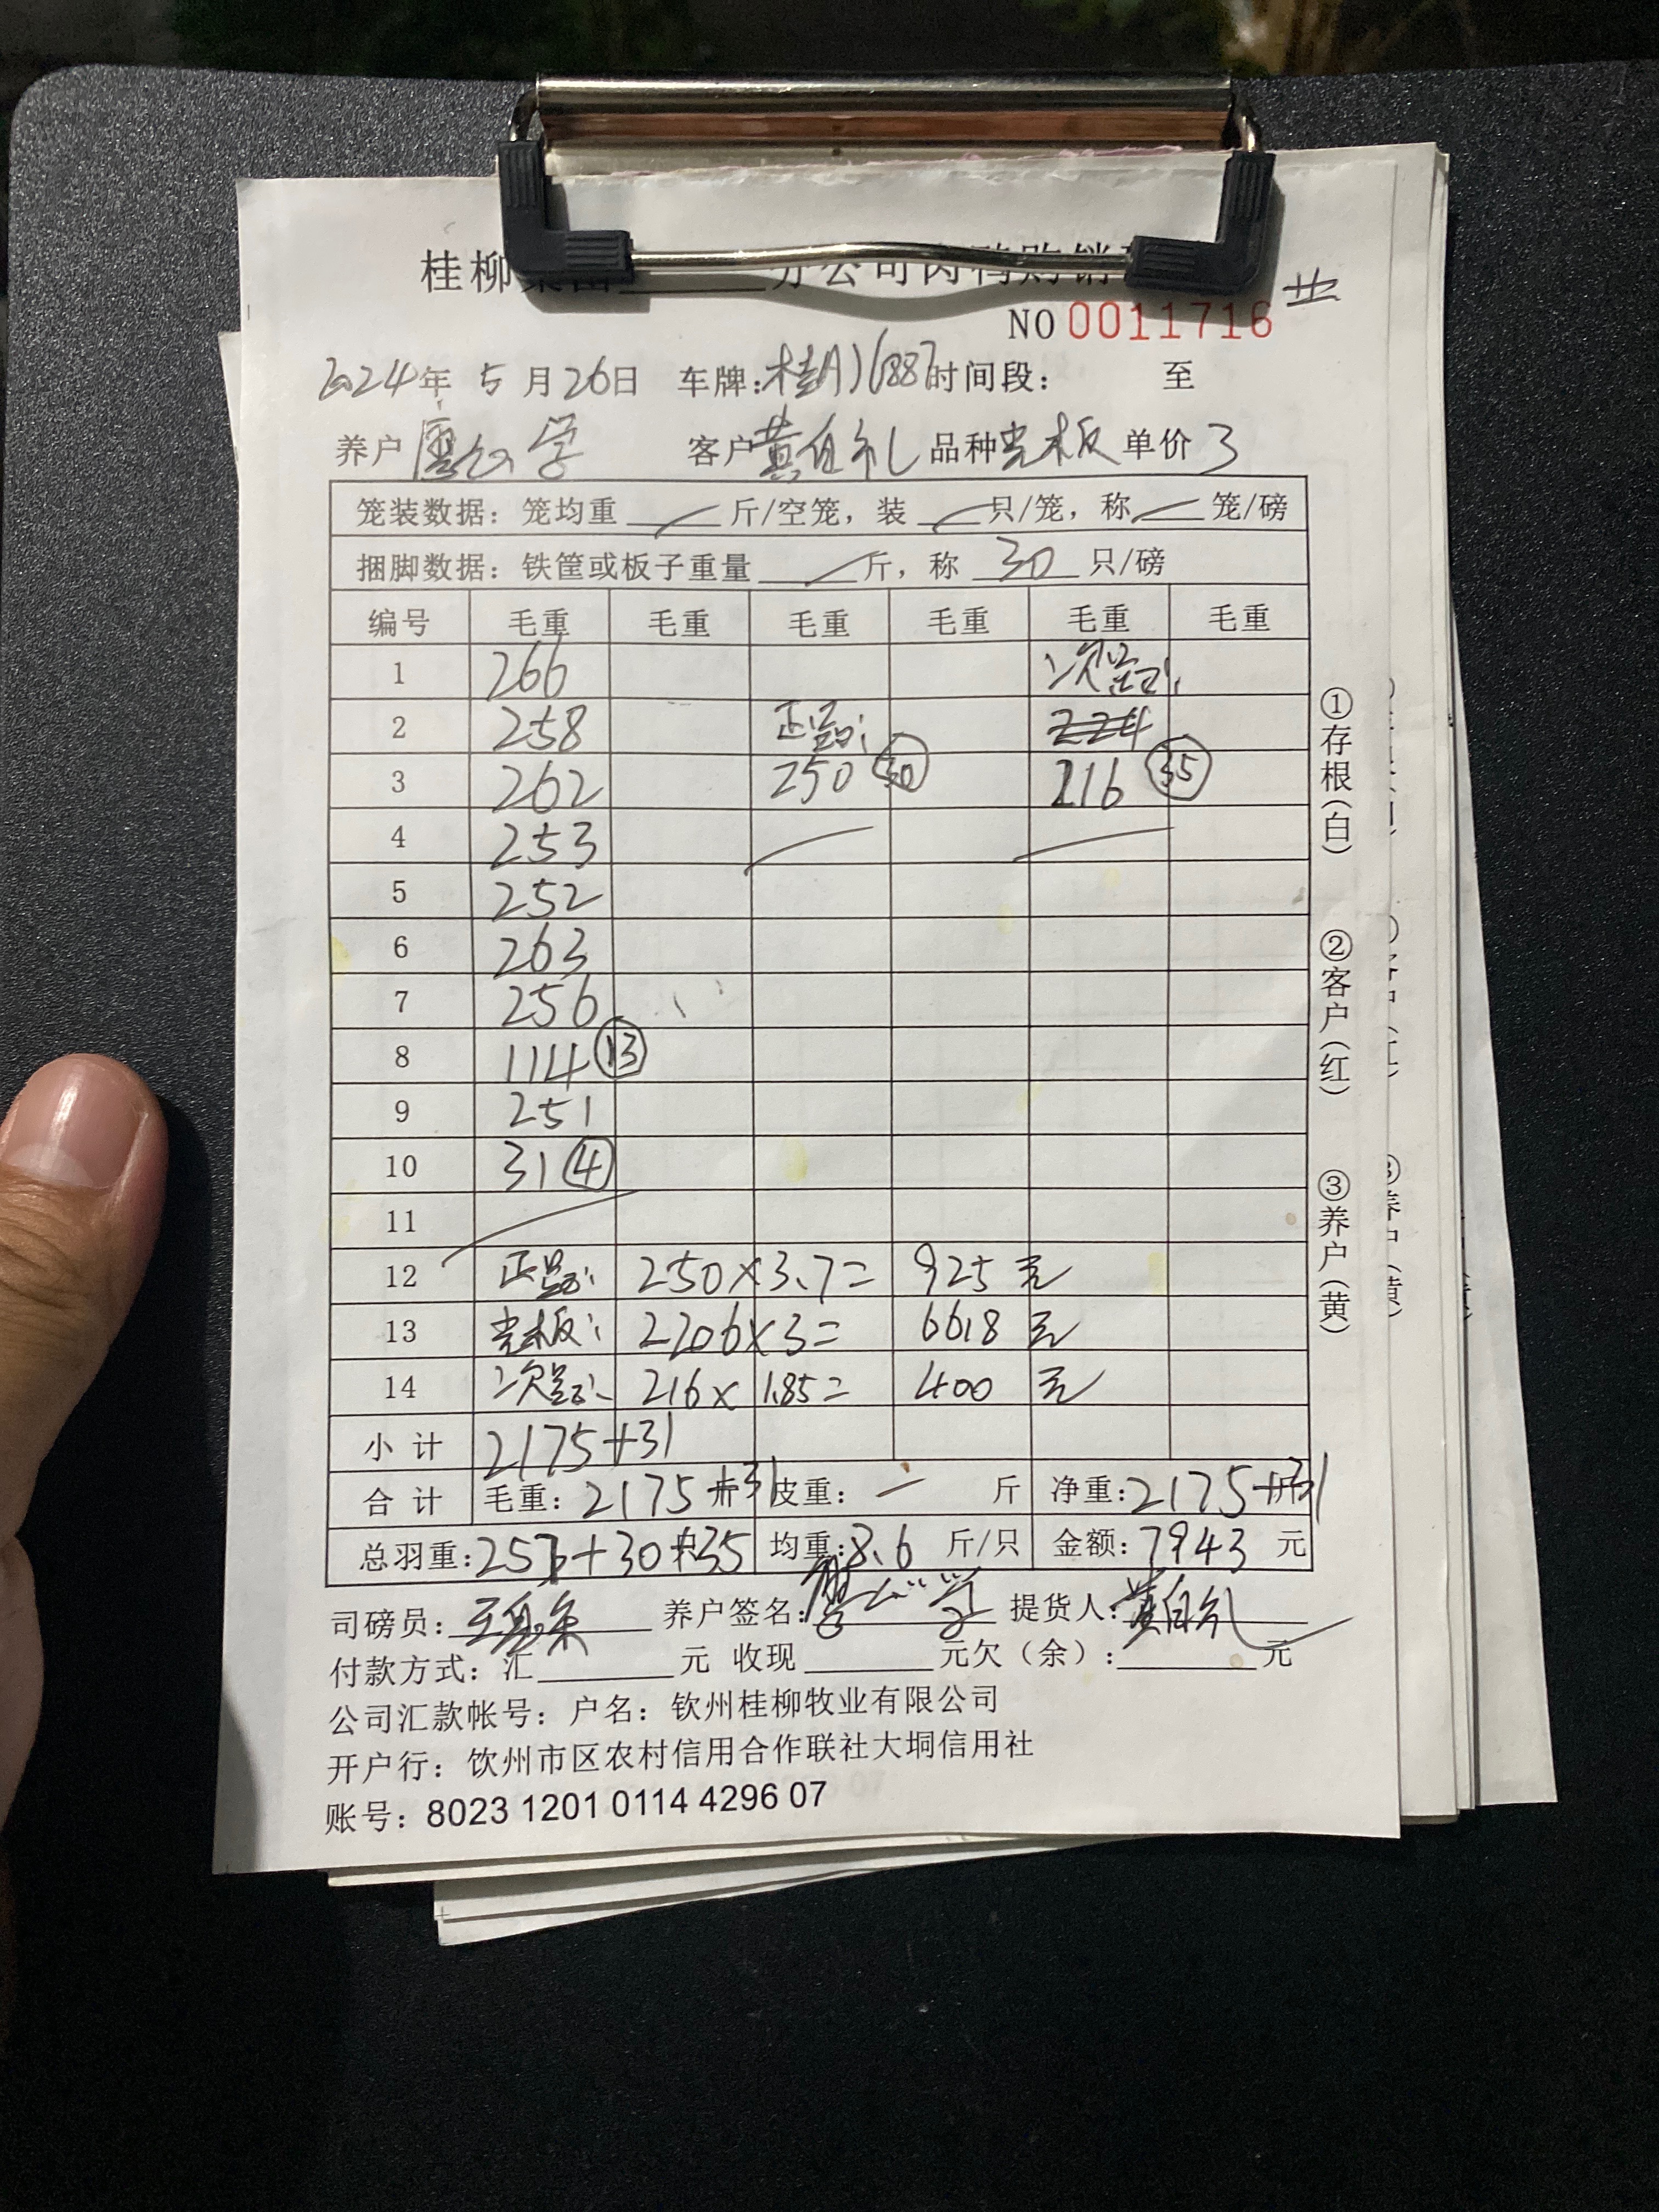 桂柳集团 分公司肉鸭购销
NO 0011716
2024年 5月26日 车牌: 时间段: 至
养户 学 客户 黄自礼 品种 光板 单价 3
笼装数据: 笼均重 斤/空笼, 装 只/笼, 称 笼/磅
捆脚数据: 铁筐或板子重量 斤, 称 30 只/磅
编号 毛重 毛重 毛重 毛重 毛重 毛重
1 266 次品:
2 258 正品:
3 262 250 30 216 35
4 253
5 252
6 263
7 256
8 114 13
9 251
10 31 4
11
12 正品: 250×3.7= 925 元
13 光板: 2206×3= 6618 元
14 次品: 216× 1.85= 400 元
小计 2175+31
合计 毛重: 2175+31 斤 皮重: 斤 净重: 2175+31 斤
总羽重: +30+35 均重: 8.6 斤/只 金额: 7943 元
司磅员: 养户签名: 学 提货人: 黄自礼
付款方式: 汇 元 收现 元欠(余): 元
公司汇款帐号: 户名: 钦州桂柳牧业有限公司
开户行: 饮州市区农村信用合作联社大垌信用社
账号: 8023 1201 0114 4296 07
①存根(白) ②客户(红) ③养户(黄)